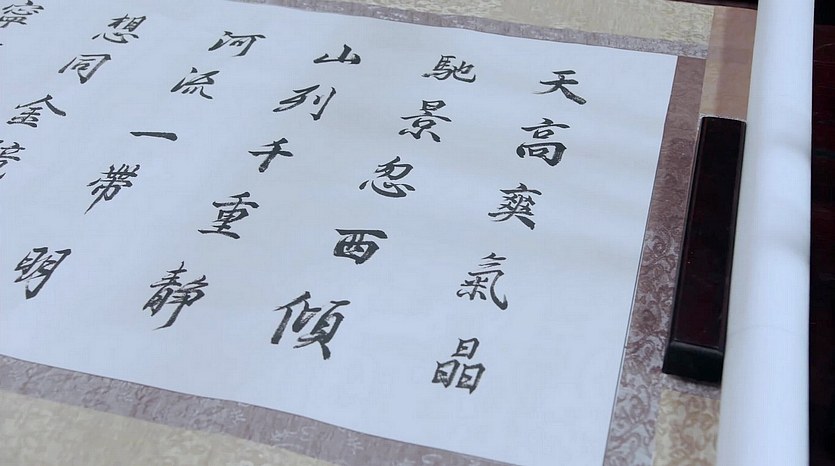 天高爽氣晶
馳景忽西傾
山列千重靜
河流一帶明
想同金
寧